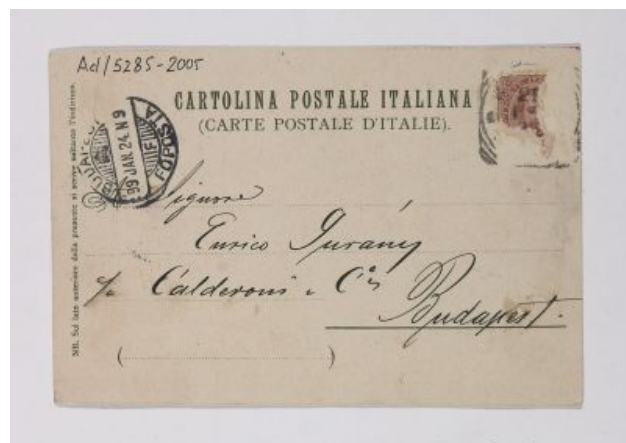 Ad/5285-2005
CARTOLINA POSTALE ITALIANA
(CARTE POSTALE D'ITALIE).
99 JAN. 24. N 9
FŐPOSTA
Signore
Enrico Jurány
c/o Calderoni e Cº
Budapest.
NB. Sul lato anteriore della presente si scrive soltanto l'indirizzo.